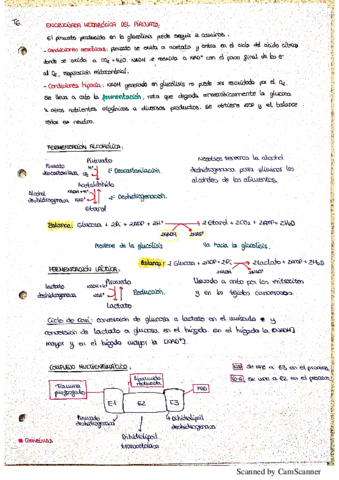 T6
ENCRUCIJADA METABÓLICA DEL PIRUVATO.
El piruvato producido en la glucólisis puede seguir 2 caminos.
- Condiciones aerobias: piruvato se oxida a acetato y entra en el ciclo del ácido cítrico
donde se oxida a CO2 + H2O. NADH se reoxida a NAD+ con el paso final de los e-
al O2, respiración mitocondrial.
- Condiciones hipoxia: NADH generado en glucólisis no puede ser reoxidado por el O2.
Se lleva a cabo la fermentación, ruta que degrada anaeróbicamente la glucosa
u otros nutrientes orgánicos a diversos productos. Se obtiene ATP y el balance
redox es neutro.
FERMENTACIÓN ALCOHÓLICA:
Piruvato
Piruvato descarboxilasa
1º Descarboxilación
Acetaldehído
Alcohol deshidrogenasa
2º Deshidrogenación
Etanol
Nosotros tenemos la alcohol
deshidrogenasa para eliminar los
alcoholes de los alimentos.
Balance: Glucosa + 2Pi + 2ADP + 2H+ → 2 Etanol + 2CO2 + 2ATP + 2H2O
2NADH 2NAD+
Proviene de la glucólisis Va hacia la glucólisis.
Balance: Glucosa + 2ADP + 2Pi → 2 lactato + 2ATP + 2H2O
2NADH 2NAD+
FERMENTACIÓN LÁCTICA:
Piruvato
lactato deshidrogenasa
Reducción.
Lactato
Llevado a cabo por los eritrocitos
y en los tejidos cancerosos
Ciclo de Cori: conversión de glucosa a lactato en el músculo y
conversión de lactato a glucosa en el hígado. En el hígado la [NADH]
mayor y en el hígado mayor la [NAD+].
COMPLEJO MULTIENZIMÁTICO:
Tiamina pirofosfato
FAD
E1 E2 E3
Piruvato deshidrogenasa
Dihidrolipoil transacetilasa
Dihidrolipoil deshidrogenasa
se une a E3 en el proceso.
se une a E2 en el proceso.
Scanned by CamScanner